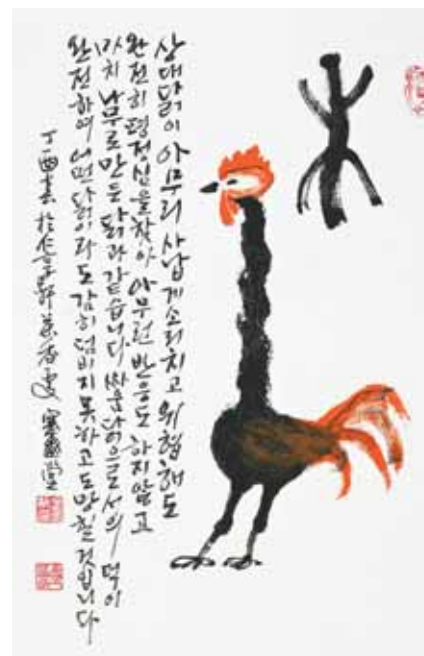 상대닭이 아무리 사납게 소리치고 위협해도
완전히 평정심을 찾아 아무런 반응도 하지 않고
마치 나무로 만든 닭과 같습니다 싸움닭으로서의 덕이
완전하여 어떤 닭이라도 감히 덤비지 못하고 도망칠 것입니다
丁酉